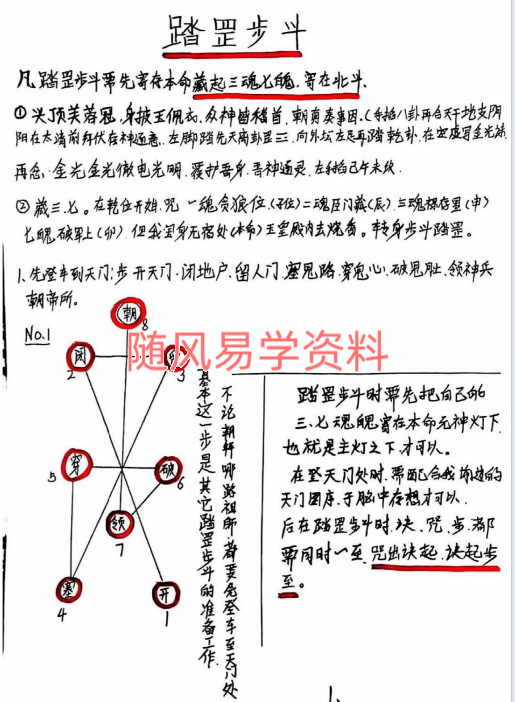 踏罡步斗
凡踏罡步斗要先寄存本命藏起三魂七魄,寄在北斗.
①头顶芙蓉冠,身披玉佩衣,众神皆稽首,朝真奏事因.(手掐八卦再合天干地支阴
阳在太清前拜伏存神通意,左脚踏先天离卦罡三,向外坛左足再踏乾卦,在空虚写金光讳
再念,金光金光傲电光明,覆护吾身,吾神通灵,左手掐己午未纹.
②藏三.七。在乾位开始,咒一魂贪狼位(子位)二魂臣门藏(辰).三魂禄存里(申)
七魄破军上(卯)但我浑身无宿处(本命)玉皇殿内去烧香。转身步斗踏罡。
1.先登车到天门:步开天门.闭地户,留人门,塞鬼路,穿鬼心,破鬼肚、领神兵
朝帝所。
No.1
朝
8
闭
2
3
穿
5
破
6
领
7
塞
4
开
1
不论朝拜哪路祖师都要先登车至天门处
基本这一步是其它踏罡步斗的准备工作.
踏罡步斗时要先把自己的
三、七魂魄寄在本命元神灯下
也就是主灯之下才可以。
在登天门处时,要配合我前边的
天门图序,于脑中存想才可以.
后在踏罡步斗时,诀、咒、步、都
要同时一至,咒出诀起,诀起步
至。
随风易学资料